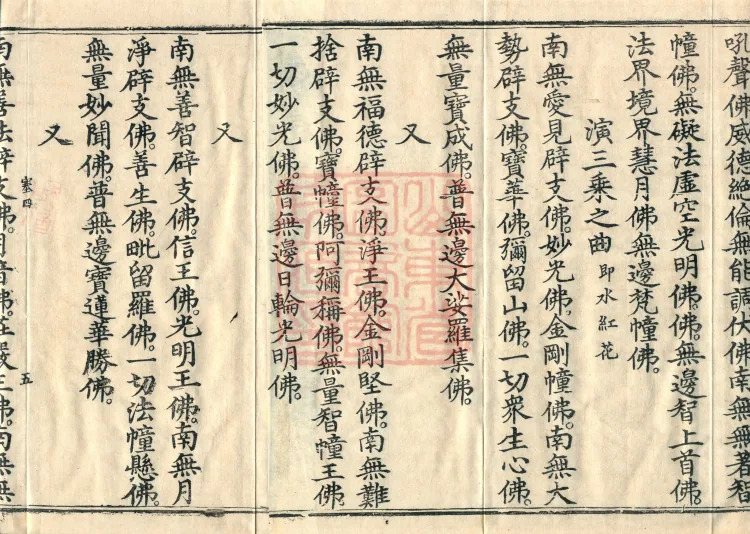 吼聲佛威德絕倫無能調伏佛南無無著智
幢佛。無礙法虛空光明佛。佛。無邊智上首佛。
法界境界慧月佛無邊梵幢佛。
演三乘之曲 即水紅花
南無愛見辟支佛。妙光佛。金剛幢佛。南無大
勢辟支佛。寶華佛。彌留山佛。一切衆生心佛。
無量寶成佛。普無邊大娑羅集佛。
又
南無福德辟支佛。淨王佛。金剛堅佛。南無難
捨辟支佛。寶幢佛。阿彌稱佛。無量智幢王佛。
一切妙光佛。普無邊日輪光明佛。
又
南無善智辟支佛。信王佛。光明王佛。南無月
淨辟支佛。善生佛。毗留羅佛。一切法幢懸佛。
無量妙聞佛。普無邊寶蓮華勝佛。
又
塞四 五
南無善法辟支佛。月音佛。莊嚴王佛。南無無